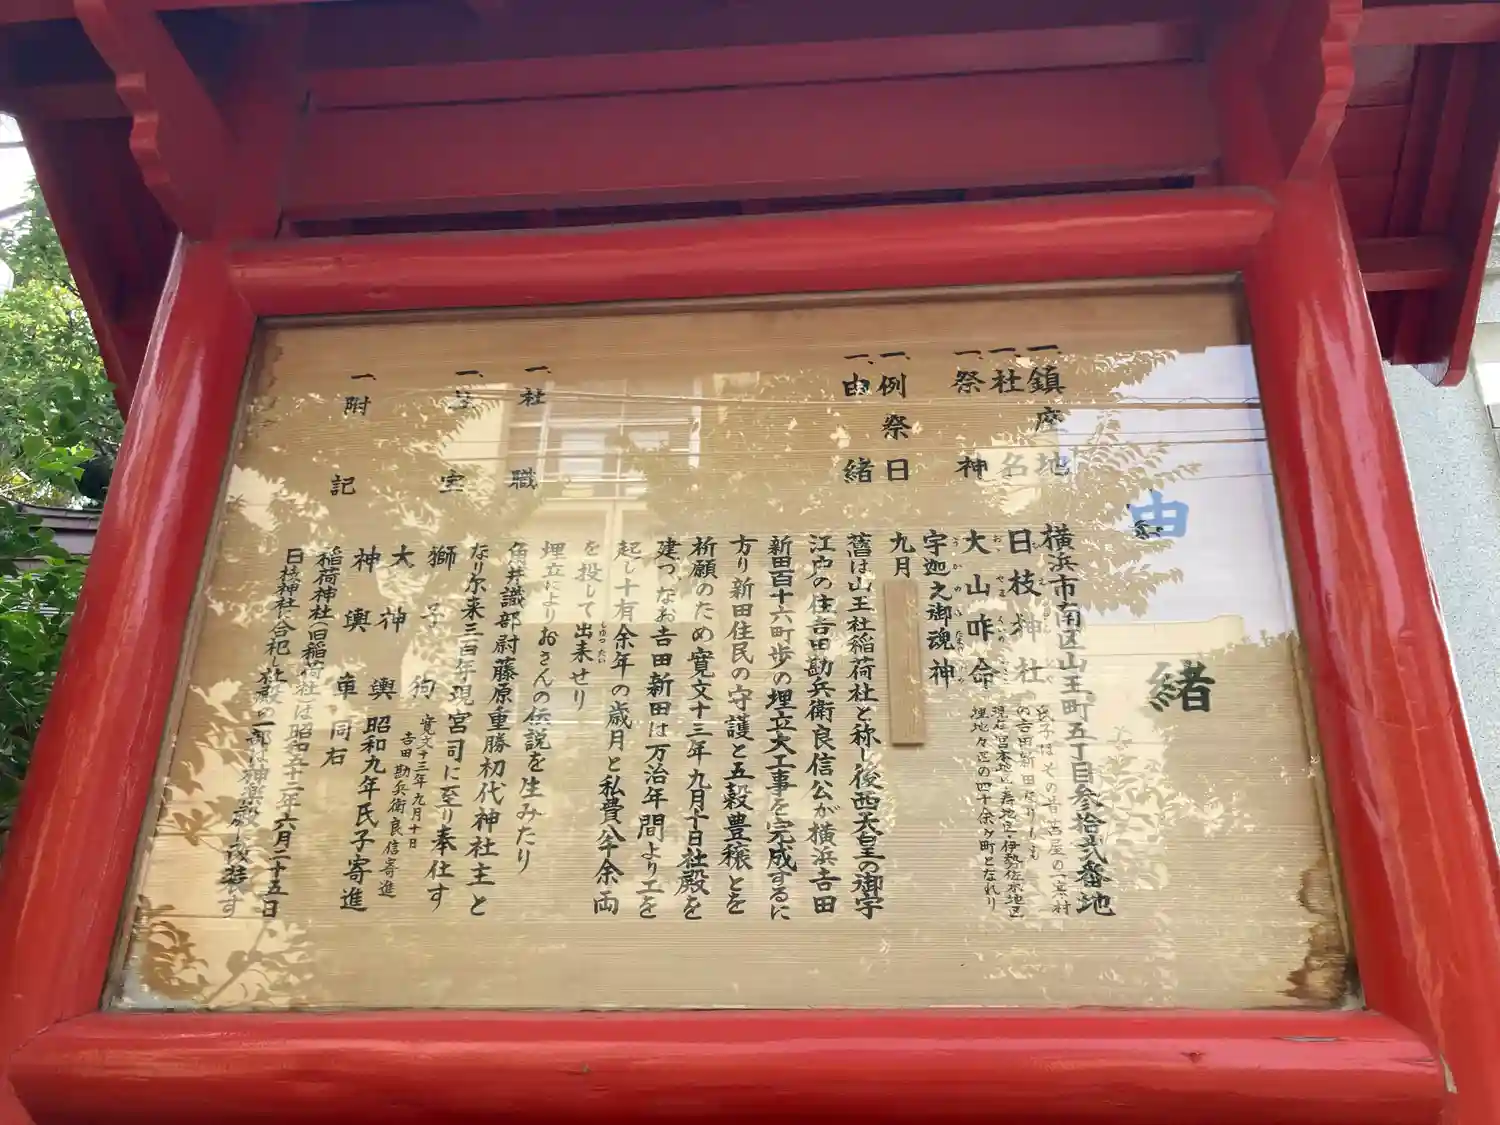 由緒
一、鎮座地 横浜市南区山王町五丁目参拾弐番地
一、社名 日枝神社
氏子はその昔吉屋の一寒村
の吉田新田なりしも
現在宮本地区・寿地区・伊勢佐木地区
埋地々区の四十余ヶ町となれり
一、祭神 大山咋命
宇迦之御魂神
一、例祭日 九月
一、由緒 舊は山王社稲荷社と称し後西天皇の御宇
江戸の住吉田勘兵衛良信公が横浜吉田
新田百十六町歩の埋立大工事を完成するに
方り新田住民の守護と五穀豊穣とを
祈願のため寛文十三年九月十日社殿を
建つ、なお吉田新田は万治年間より工を
起し十有余年の歳月と私費八千余両
を投して出来せり
しゅったい
埋立によりおさんの伝説を生みたり
一、社職 角井識部尉藤原重勝初代神社主と
なり尓来三百年現宮司に至り奉仕す
一、宝 獅子狛 寛文十三年九月十日
吉田勘兵衛良信寄進
大神輿 昭和九年氏子寄進
神輿車 同右
一、附記 稲荷神社(旧稲荷社)は昭和五十二年六月二十五日
日枝神社へ合祀し社殿の一部は神楽殿に改装す